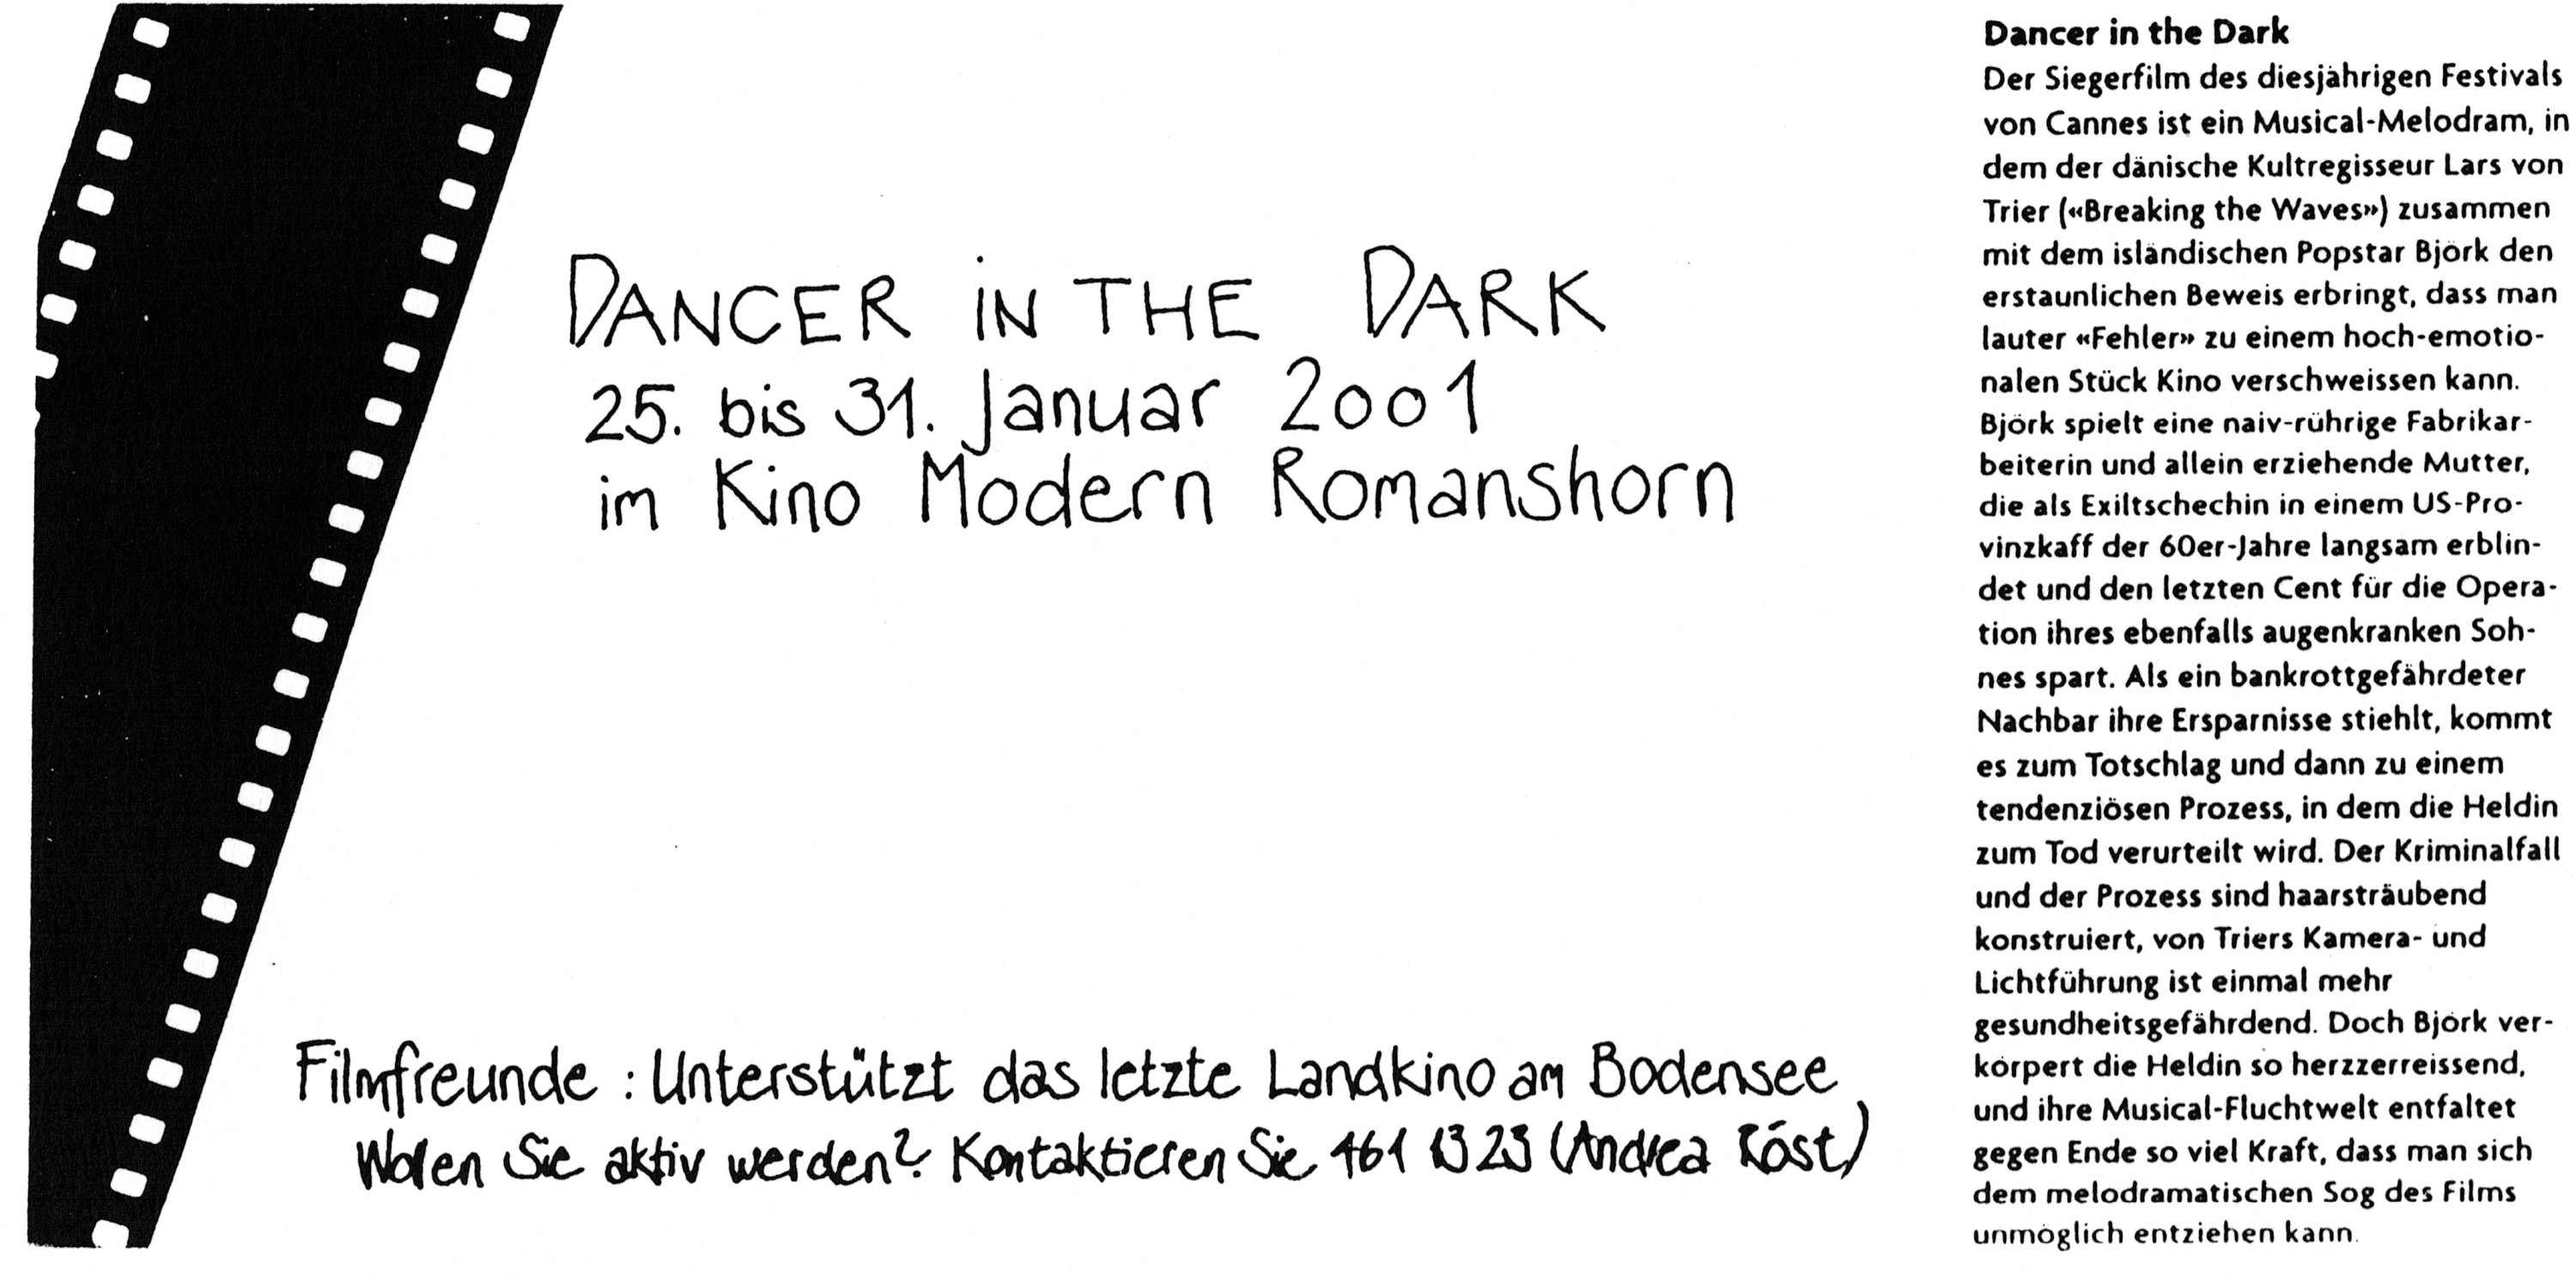 DANCER iN THE DARK
25. bis 31. Januar 2001
im Kino Modern Romanshorn
Filmfreunde : Unterstützt das letzte Landkino am Bodensee
Wolen Sie aktiv werden? Kontaktieren Sie 461 13 23 (Andrea Röst)
Dancer in the Dark
Der Siegerfilm des diesjährigen Festivals
von Cannes ist ein Musical-Melodram, in
dem der dänische Kultregisseur Lars von
Trier («Breaking the Waves») zusammen
mit dem isländischen Popstar Björk den
erstaunlichen Beweis erbringt, dass man
lauter «Fehler» zu einem hoch-emotio-
nalen Stück Kino verschweissen kann.
Björk spielt eine naiv-rührige Fabrikar-
beiterin und allein erziehende Mutter,
die als Exiltschechin in einem US-Pro-
vinzkaff der 60er-Jahre langsam erblin-
det und den letzten Cent für die Opera-
tion ihres ebenfalls augenkranken Soh-
nes spart. Als ein bankrottgefährdeter
Nachbar ihre Ersparnisse stiehlt, kommt
es zum Totschlag und dann zu einem
tendenziösen Prozess, in dem die Heldin
zum Tod verurteilt wird. Der Kriminalfall
und der Prozess sind haarsträubend
konstruiert, von Triers Kamera- und
Lichtführung ist einmal mehr
gesundheitsgefährdend. Doch Björk ver-
körpert die Heldin so herzzerreissend,
und ihre Musical-Fluchtwelt entfaltet
gegen Ende so viel Kraft, dass man sich
dem melodramatischen Sog des Films
unmöglich entziehen kann.